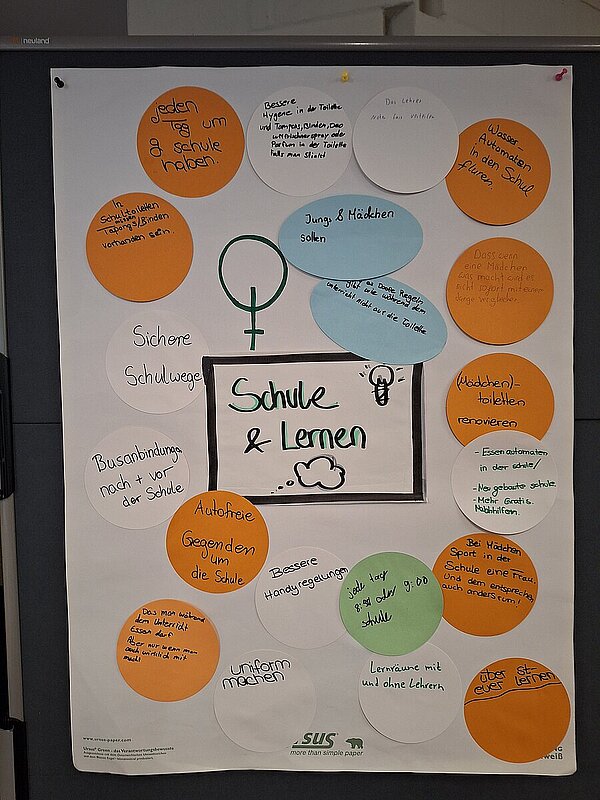 neuland
jeden
Tag um
9 schule
haben.
Bessere
Hygiene in der Toilette
und Tampons, Binden, Deo
oder
Parfüm in der Toilette
falls man stinkt
Das Lehrer
Wasser-
Automaten
in den Schul
fluren.
In
Schultoiletten
müssen
Tapongs/Binden
vorhanden sein.
Jungs & Mädchen
sollen
es Doofe Regeln
gibt wie während dem
unterricht nicht auf die Toilette
Dass wenn
eine Mädchen
was macht wird es
nicht sofort mit einem
Junge verglichen
Sichere
Schulwege
(Mädchen)-
toiletten
renovieren
Schule
& Lernen
Busanbindung
nach + vor
der Schule
- Essen automaten
in der schule/
- Neu gebaute schule
- Mehr Gratis.
Nachhilfen.
Autofreie
Gegenden
um
die Schule
Bessere
Handyregelungen
jede tag
8:30 oder 9:00
schule
Bei Mädchen
Sport in der
Schule eine Frau.
Und dem entsprechend
auch anders rum!
Das man während
dem Unterricht
Essen darf
Aber nur wenn man
auch wirklich mit
macht
uniform
machen
Lernräume mit
und ohne Lehrern
über St-
eues lernen
www.ursus-paper.com
SUS
more than simple paper
Ursus® Green - das Verantwortungsbewusste